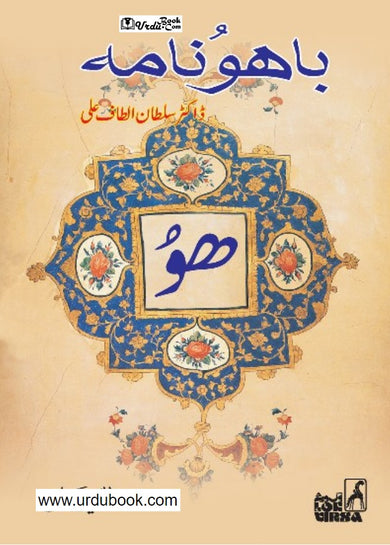 UrduBook.Com
باھوُنامہ
ڈاکٹر سلطان الطاف علی
ھوُ
www.urdubook.com